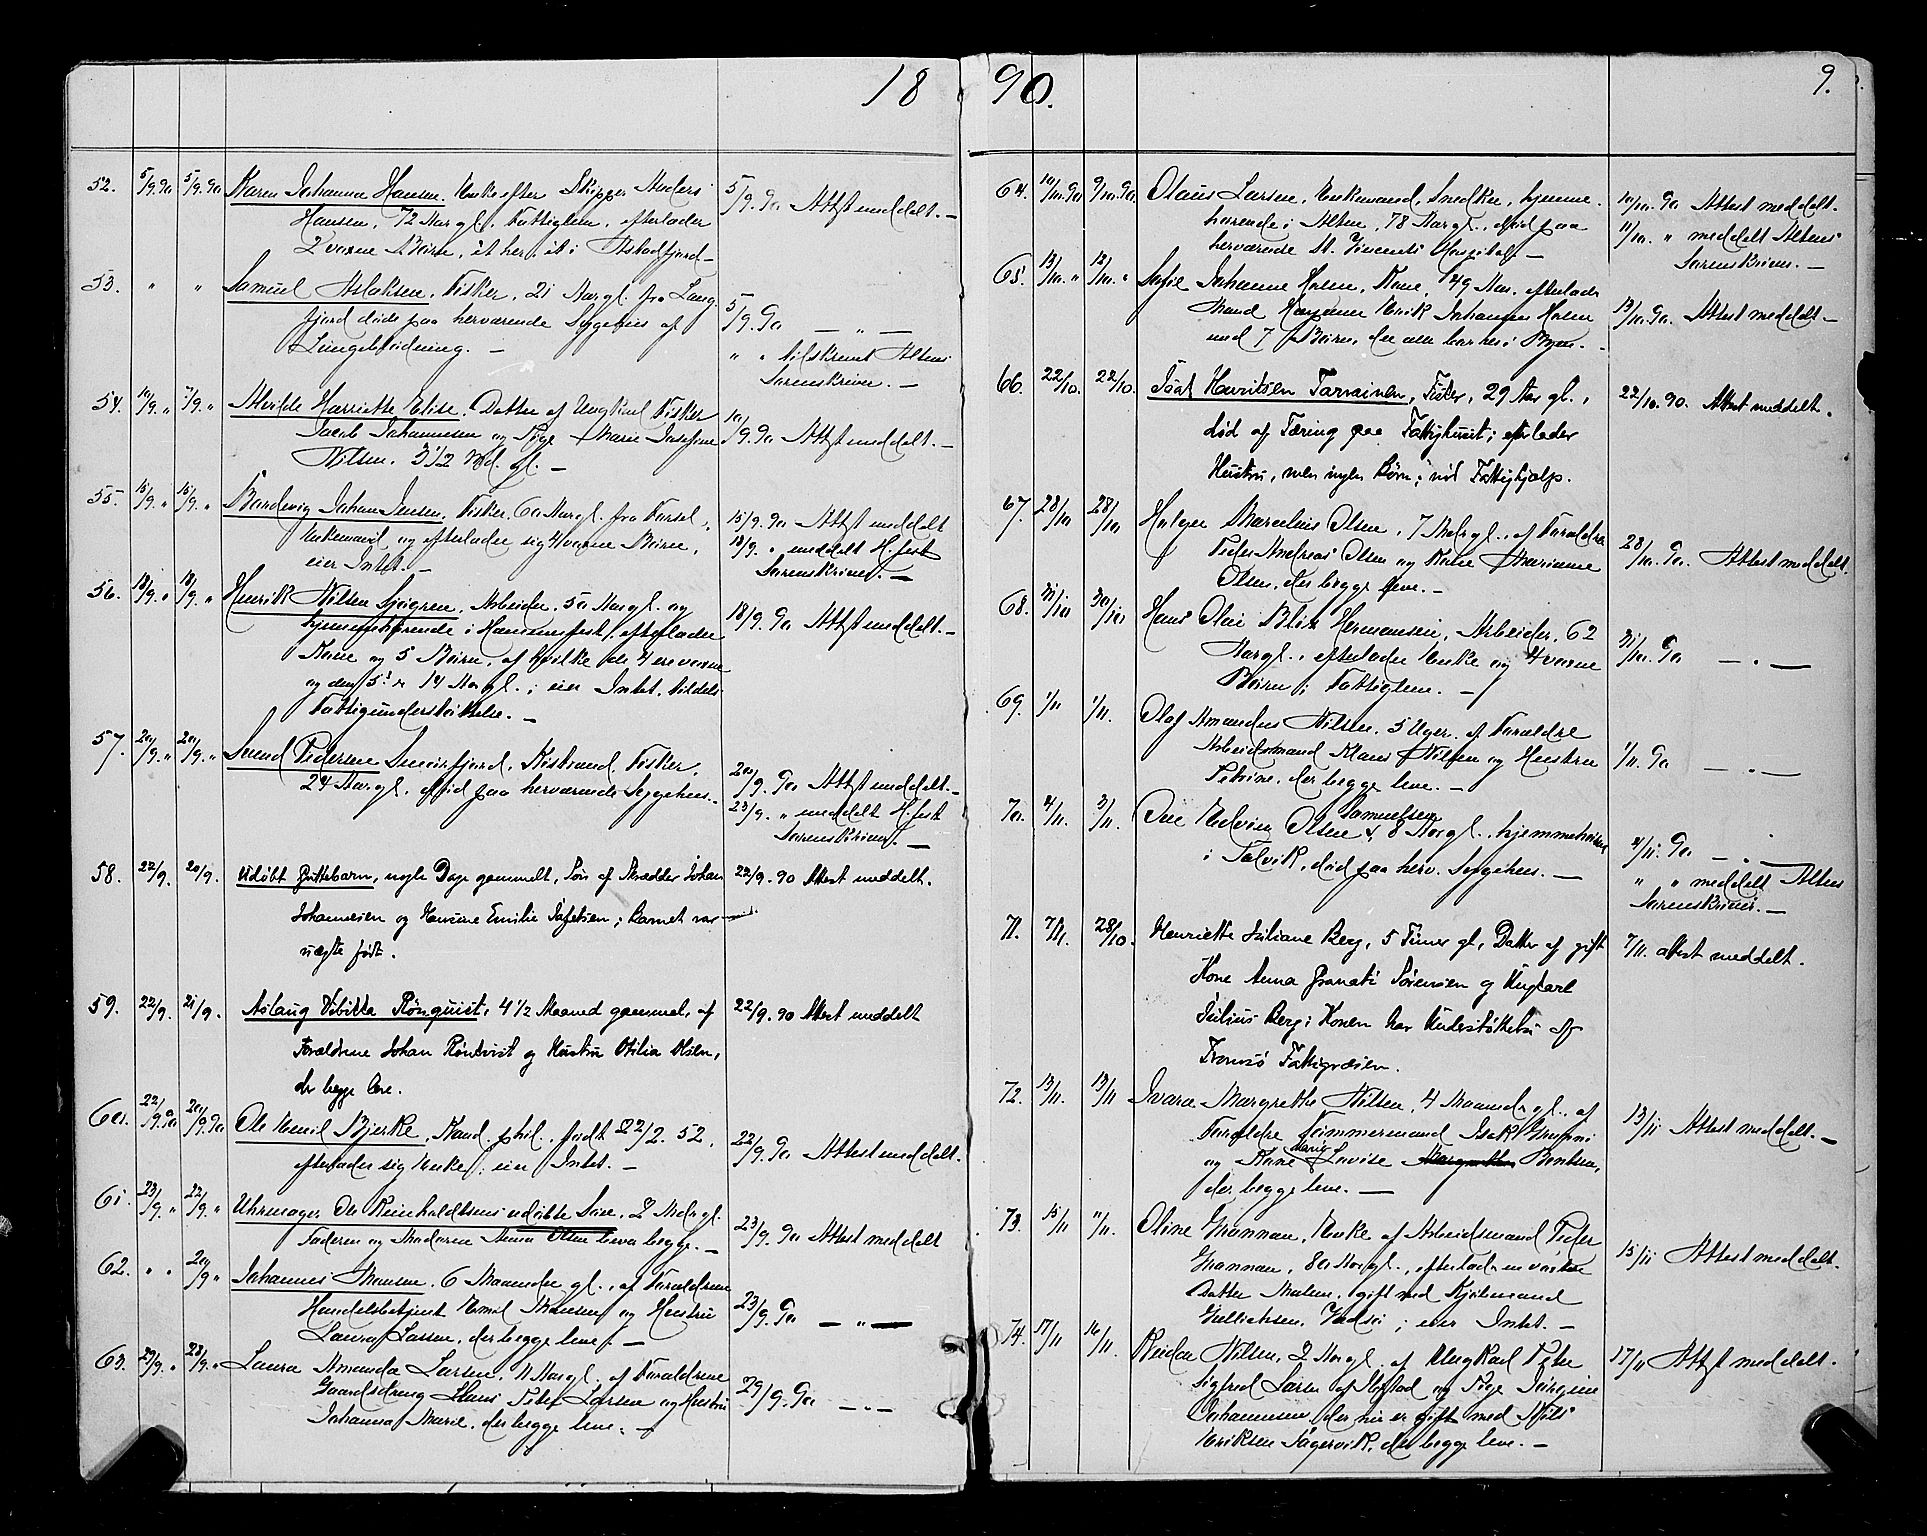 1890.
9.
52. 5/9.90 5/9.90 Karen Johanna Hansen. Enke efter Skipper Anders
Hansen, 72 Aar gl. Fattiglem, efterlader
2 voxne Børn, et her, et i Astadfjord. 5/9.90 Attest meddelt. —
53. " " Samuel Aslaksen. Fisker. 21 Aar gl. fra Lang-
fjord døde paa herværende Sygehus af
Lungebetændning. — 5/9.90 — " —
" " tilskrevet Altens
Sorenskriver. —
54. 10/9. " 7/9. " Alvilde Harriette Elise. Datter af Ungkarl Fisker
Jacob Johannesen og Pige Marie Josefine
Nilsen. 3 1/2 Md. gl. — 10/9.90 Attest meddelt. —
55. 15/9. " 15/9. " Johan Jensen. Fisker. 60 Aar gl. fra
Enkemand og efterlader sig 4 voxne Børn,
eier Intet. — 15/9.90 Attest meddelt
18/9. " meddelt H.fest
Sorenskriver. —
56. 18/9. " 18/9. " Henrik Nilsen Sjøgren. Arbeider. 50 Aar gl. og
hjemmehørende i Hammerfest, efterlader
Kone og 5 Børn, af hvilke de 4 ere voxne
og den 5te er 14 Aar gl.; eier Intet. Tildels
Fattigunderstøttelse. — 18/9.90 Attest meddelt. —
57. 20/9. " 20/9. " Svend Pedersen Smørfjord. Kistrand. Fisker.
24 Aar gl. død paa herværende Sygehus. 20/9.90 Attest meddelt. —
23/9. " meddelt H.fest
Sorenskriver. —
58. 22/9. 20/9. Udøbt Guttebarn, nogle Dage gammelt, Søn af Skrædder Johan
Johannesen og Hansine Emilie Tofelsen; Barnet var
uægte født. 22/9. 90 Attest meddelt.
59. 22/9. 21/9. Aslaug Vibikka Rönquist, 4 1/2 Maaned gammel, af
Forældrene Johan Rönkvist og Hustru Otilia Olsen,
der begge leve. 22/9. 90 Attest meddelt
60. 22/9.90 20/9.90 Ole Emil Bjerke, Kand. phil. født 22/2. 52,
efterlader sig Enke; eier Intet. — 22/9.90 Attest meddelt.
61. 23/9. " 22/9. " Uhrmager Ole Reinholdtsens udøbte Søn. 2 Md. gl.
Faderen og Moderen Anna Olsen leve begge. — 23/9.90 Attest meddelt
62. " " 20/9 " Johannes Monsen. 6 Maaneder gl., af Forældrene
Handelsbetjent Emil Monsen og Hustru
Laura Larsen, der begge leve. — 23/9.90 — " —
63. 29/9. " 28/9. " Laura Amanda Larsen, 11 Aar gl. af Forældrene
Gaardsdreng Hans Peter Larsen og Hustru
Johanna Marie, der begge leve. — 29/9.90 — " —
64. 10/10.90 9/10.90. Olaus Larsen, Enkemand, Snedker, hjemme-
hørende i Alten, 78 Aar gl., død paa
herværende St. Vincents Hospital. — 10/10.90 Attest meddelt.
11/10. " meddelt Altens
Sorenskriver. —
65. 13/10. " 12/10. " Sofie Johanne Holm, Kone, 49 Aar. efterlader
Mand Erik Johannes Holm
med 7 Børn, der alle bor her i Byen. — 13/10.90. Attest meddelt —
66. 22/10. 22/10. Joat Henriksen Tarvainen, Fisker, 29 Aar gl.,
død af Tæring paa Fattighuset; efterlader
Hustru, men ingen Børn; nød Fattighjælp. 22/10. 90. Attest meddelt.
67. 28/10 28/10 Holger Marcelius Olsen, 7 Mdr gl., af Forældre
Peder Andreas Olsen og Kone Marianne
Olsen, der begge leve. — 28/10.90. Attest meddelt.
68. 31/10 30/10 Hans Olai Blix Hermansen, Arbeider, 62
Aar gl., efterlader Enke og 4 voxne
Børn; Fattiglem. — 31/10.90 — " —
69. 1/11 1/11. Olaf Amandus Nilsen. 5 Uger. af Forældre
Arbeidsmand Klaus Nilsen og Hustru
Petrine, der begge leve. — 1/11.90 — " —
70. 4/11. 3/11. Ole Edvin Olsen Samuelsen 8 Aar gl. hjemmehørende
i Talvik, død paa herv. Sygehus. — 4/11.90 — " —
" " meddelt Altens
Sorenskriver. —
71. 7/11. 28/10. Henriette Juliane Berg, 5 Timer gl, Datter af gift
Kone Anna Granati Sörensen og Ungkarl
Julius Berg; Konen har Understøttelse af
Tromsø Fattigvæsen. 7/11. Attest meddelt.
72. 13/11. 13/11 Ivara Margrethe Nilsen, 4 Maaneder gl. af
Forældre Tømmermand Isak
og Kone Marie Lovise Bentsen,
der begge leve. — 13/11 Attest meddelt. —
73. 15/11 11/11. Oline Grannan, Enke af Arbeidsmand Peder
Grannan, 80 Aar gl., efterlader en voxen
Datter Malene, gift med Kjøbmand
Gullichsen, Vadsø; eier Intet. — 15/11 Attest meddelt.
74. 17/11 16/11. Reidar Nilsen, 2 Aar gl. af Ungkarl Peter
Sigfred Larsen af og Pige Jørgine
Johannesen, der nu er gift med Nils
Eriksen Jægervik, der begge leve. — 17/11 Attest meddelt.